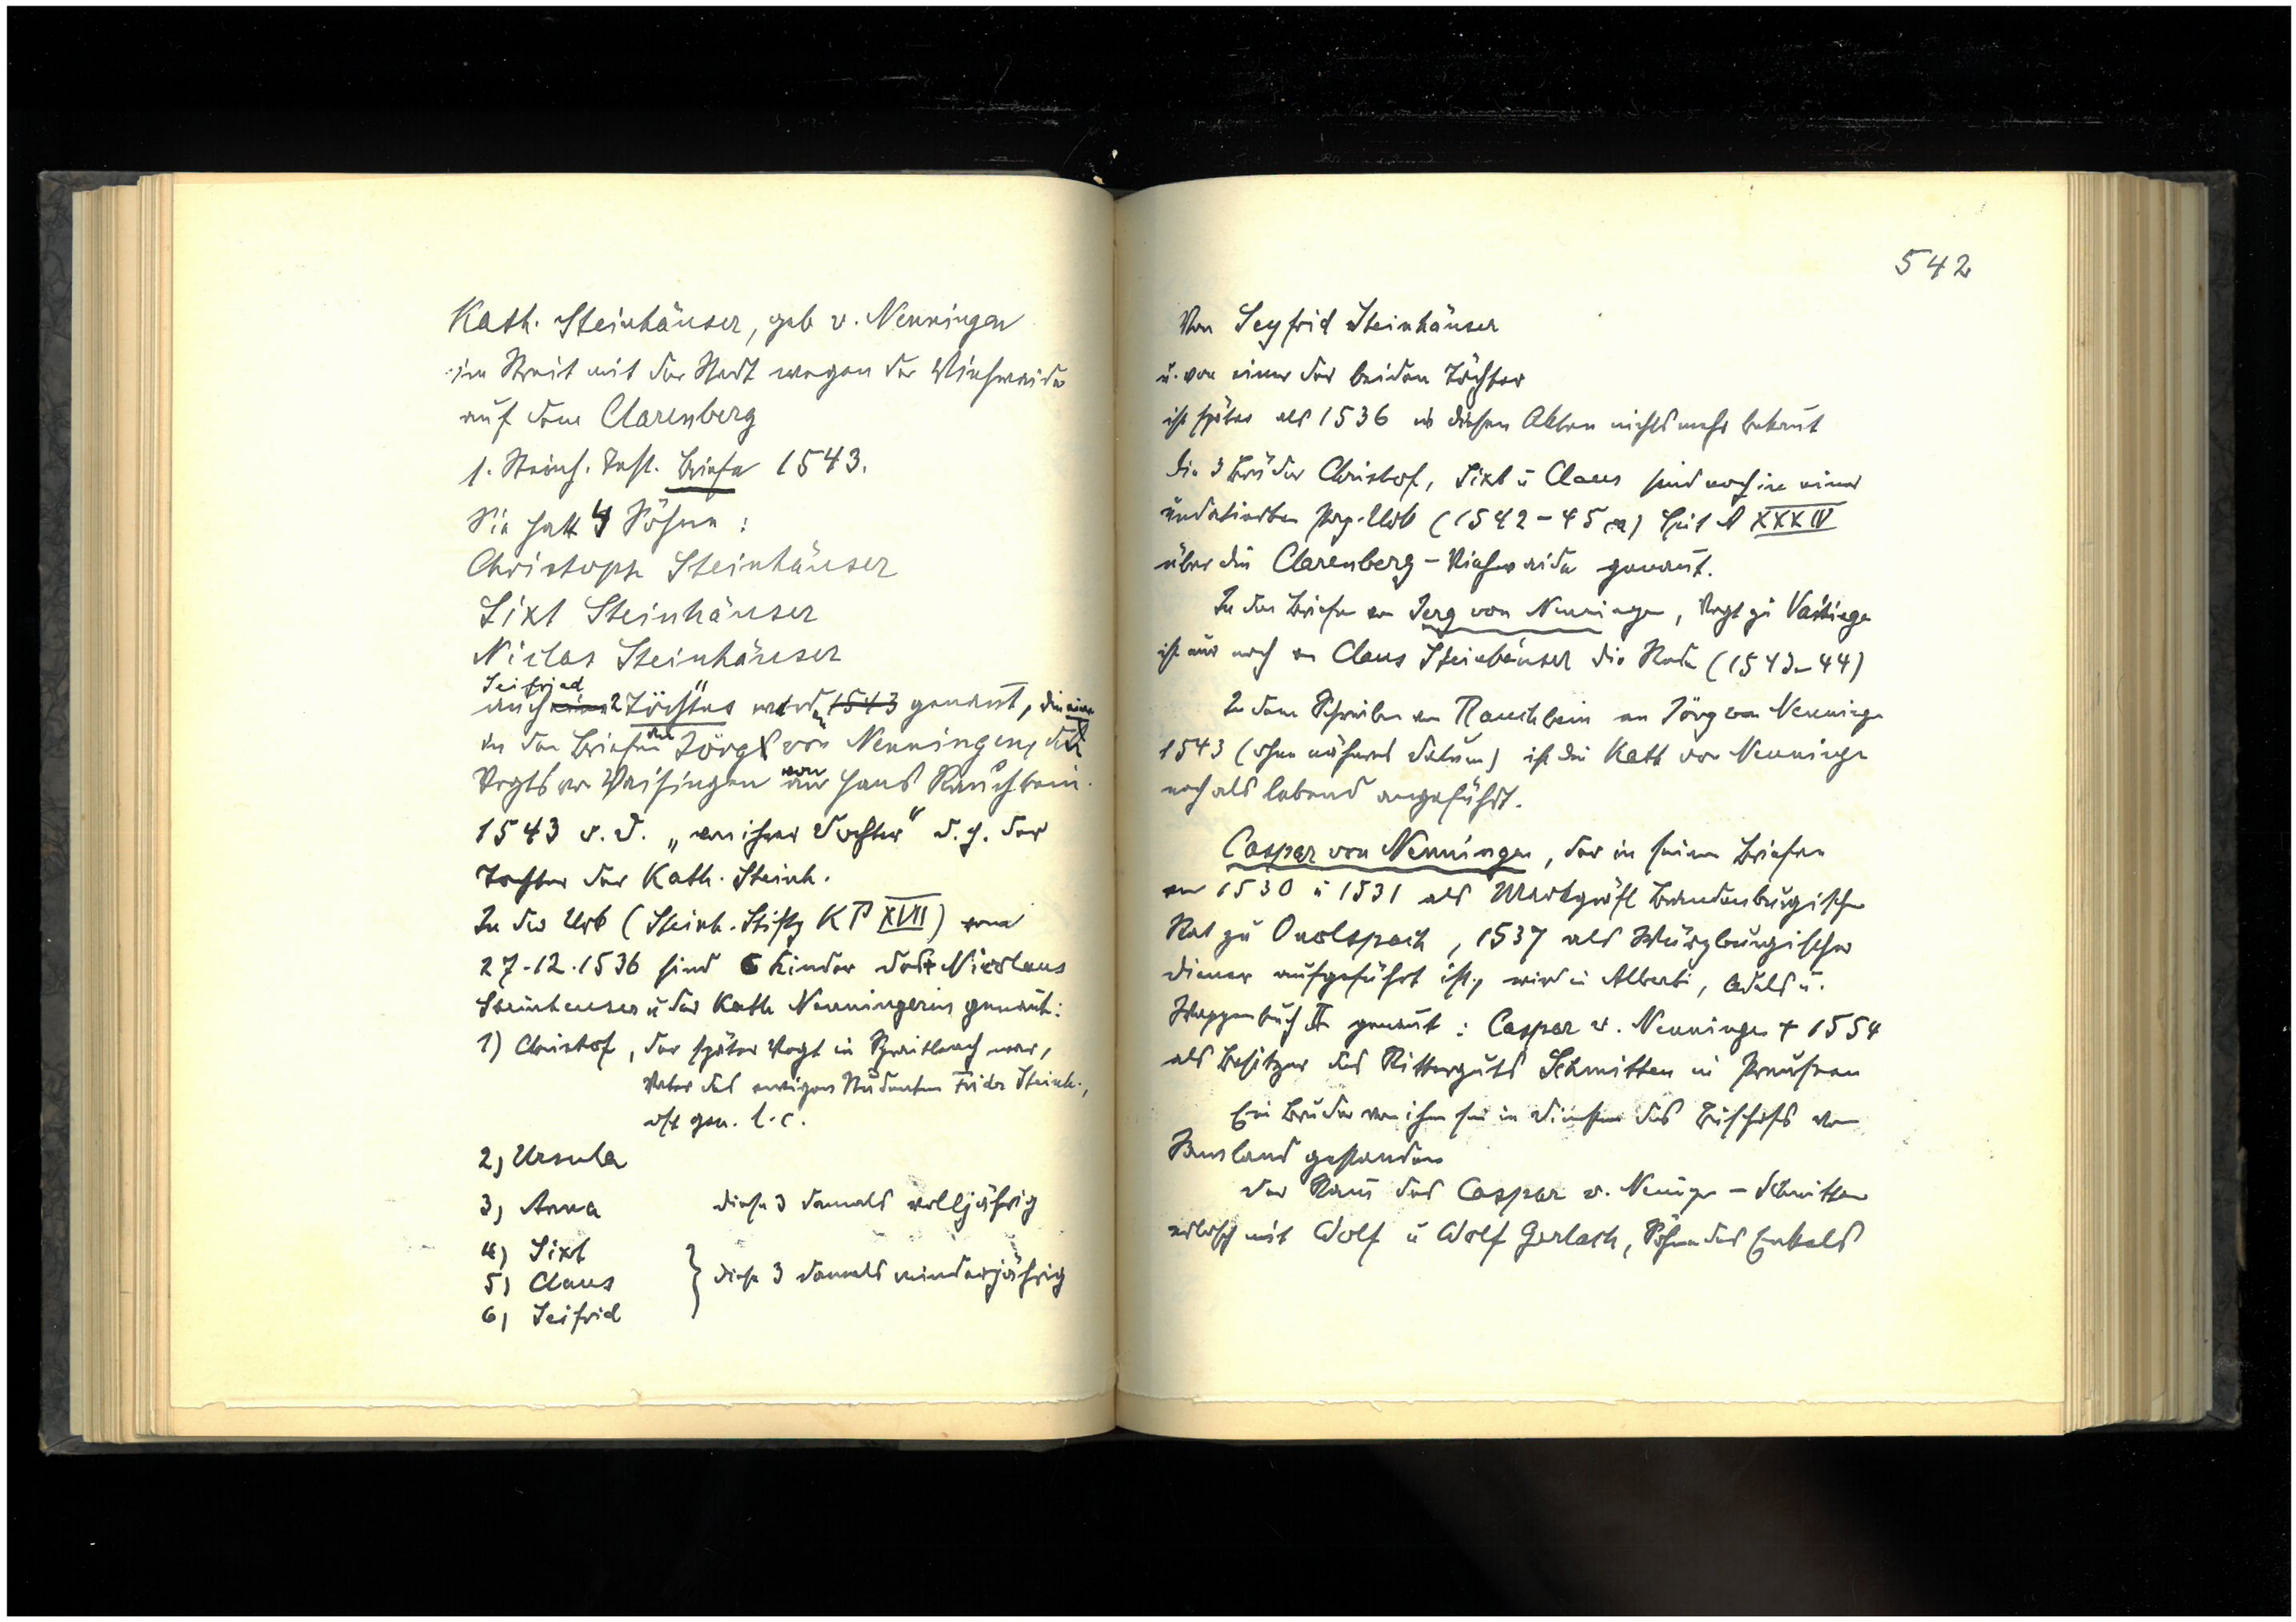 Kath. Steinhäuser, geb v. Nenningen
im Streit mit der Stadt wegen der Viehweide
auf dem Clarenberg
s. Steinh. Best. Briefe 1543.
Sie hatt 4 Söhne :
Christoph Steinhäuser
Sixt Steinhäuser
Niclas Steinhäuser
Seifried
auch 2 Töchter werden 1543 genannt, die eine
in den Briefen des Jörg von Nenningen, des
Vogts von Vaihingen von Hans Rauchbein.
1543 o. D. „von ihrer Dochter" d. h. der
Tochter der Kath. Steinh.
In der Urk (Steinh. Stiftg K P XVII) vom
27.12.1536 sind 6 Kinder des † Nicolaus
Steinheuser u der Kath Nenningerin genannt:
1) Christof, der später Vogt in Spraitbach war,
Vater des ewigen Studenten Frider Steinh.,
oft gen. l. c.
2) Ursula
3) Anna diese 3 damals volljährig
4) Sixt
5) Claus } diese 3 damals minderjährig
6) Seifrid
542
Von Seyfrid Steinhäuser
u. von einer der beiden Töchter
ist später als 1536 in diesen Akten nichts mehr bekannt
Die 3 Brüder Christof, Sixt u Claus sind noch in einer
undatierten Pap. Urk (1542-45 ca) XXXIV
über die Clarenberg-Viehweide genannt.
In den Briefen an Jerg von Nenningen, Vogt zu Vaihinge
ist nur noch von Claus Steinhäuser die Rede (1543-44)
In dem Schreiben von Rauchbein an Jörg von Nenninge
1543 (ohne näheres Datum) ist die Kath von Nenninge
noch als lebend angeführt.
Caspar von Nenningen, der in seinen Briefen
von 1530 u 1531 als Markgräfl Brandenburgischer
Rat zu Onolspach, 1537 als Würzburgischer
Diener aufgeführt ist, wird in Alberti, Adels u.
Wappenbuch II genannt : Caspar v. Nenninge † 1554
als Besitzer des Ritterguts Schmitten in Preussen
Ein Bruder von ihm sei in Diensten des Bischofs von
Samland gestanden
Der Stamm des Caspar v. Nenninge - Schmitten
erlosch mit Wolf u Wolf Gerlach, Söhne des Enkels